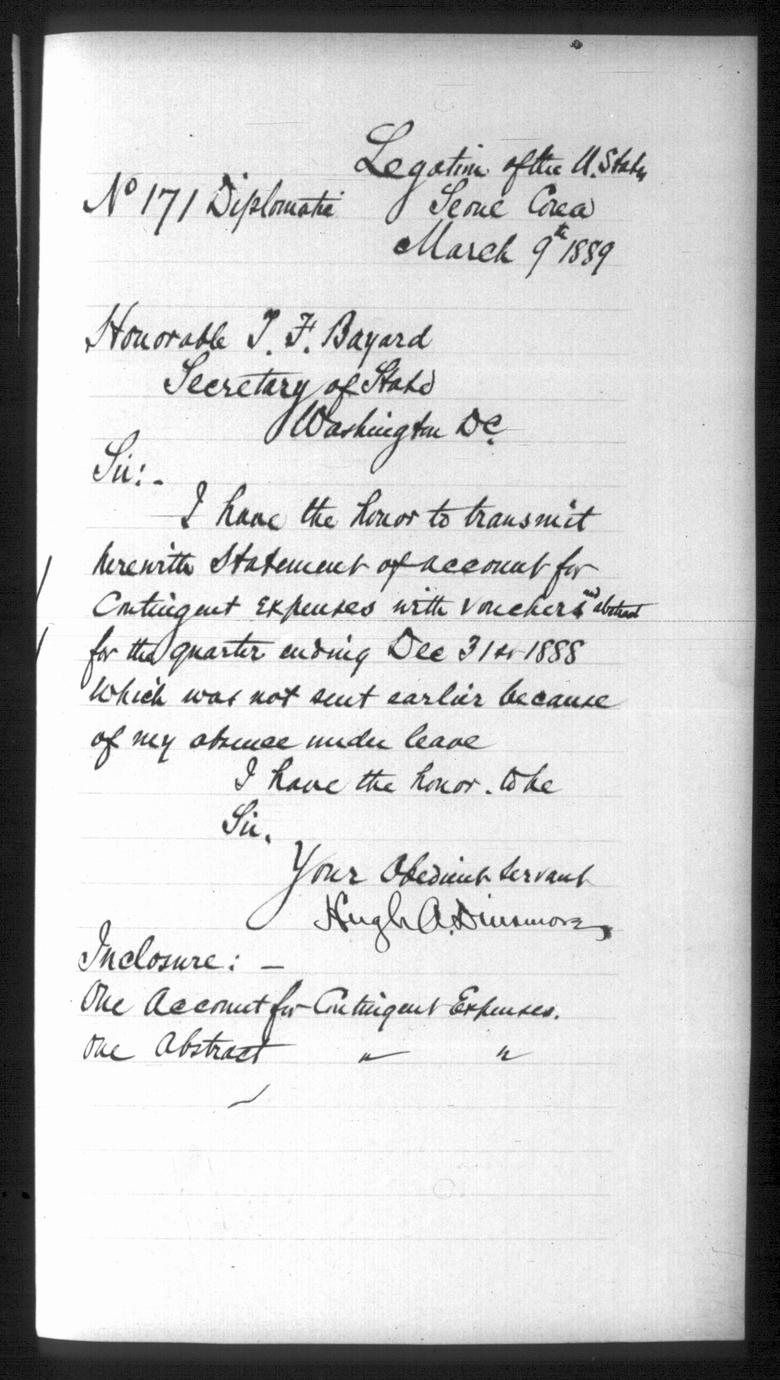 Legation of the U. States
No 171 Diplomatic
Seoul Corea
March 9th 1889
Honorable T. F. Bayard
Secretary of State
Washington D.C.
Sir:-
I have the honor to transmit
herewith Statement of account for
Contingent Expenses with vouchers and abstract
for the quarter ending Dec 31st 1888
which was not sent earlier because
of my absence under leave
I have the honor to be
Sir,
Your Obedient Servant
Hugh A. Dinsmore
Inclosure: -
One Account for Contingent Expenses.
One Abstract " "